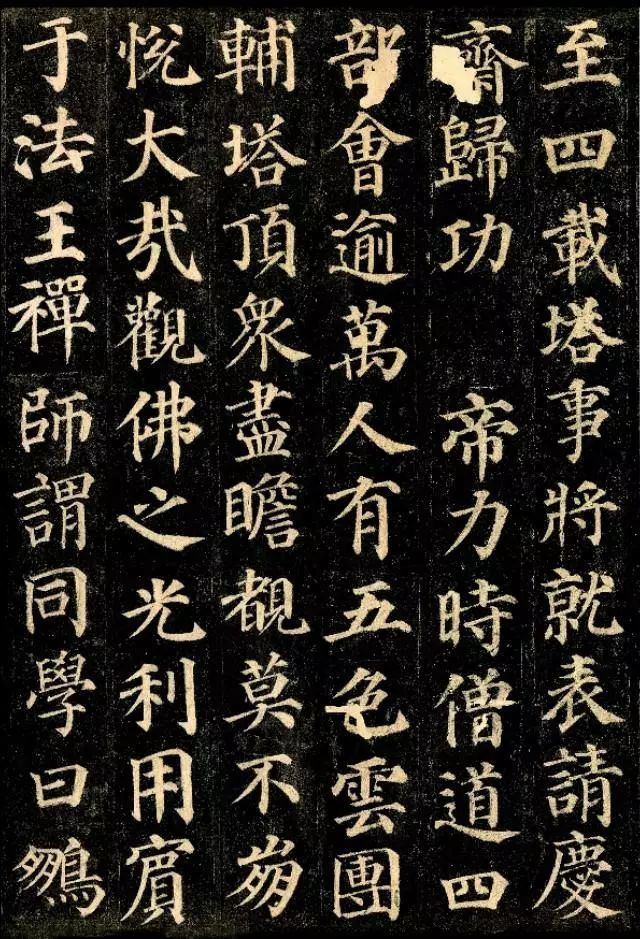 至四載塔事將就表請慶
齋歸功　帝力時僧道四
部會逾萬人有五色雲團
輔塔頂衆盡瞻覩莫不崩
悅大哉觀佛之光利用賓
于法王禪師謂同學曰鵬